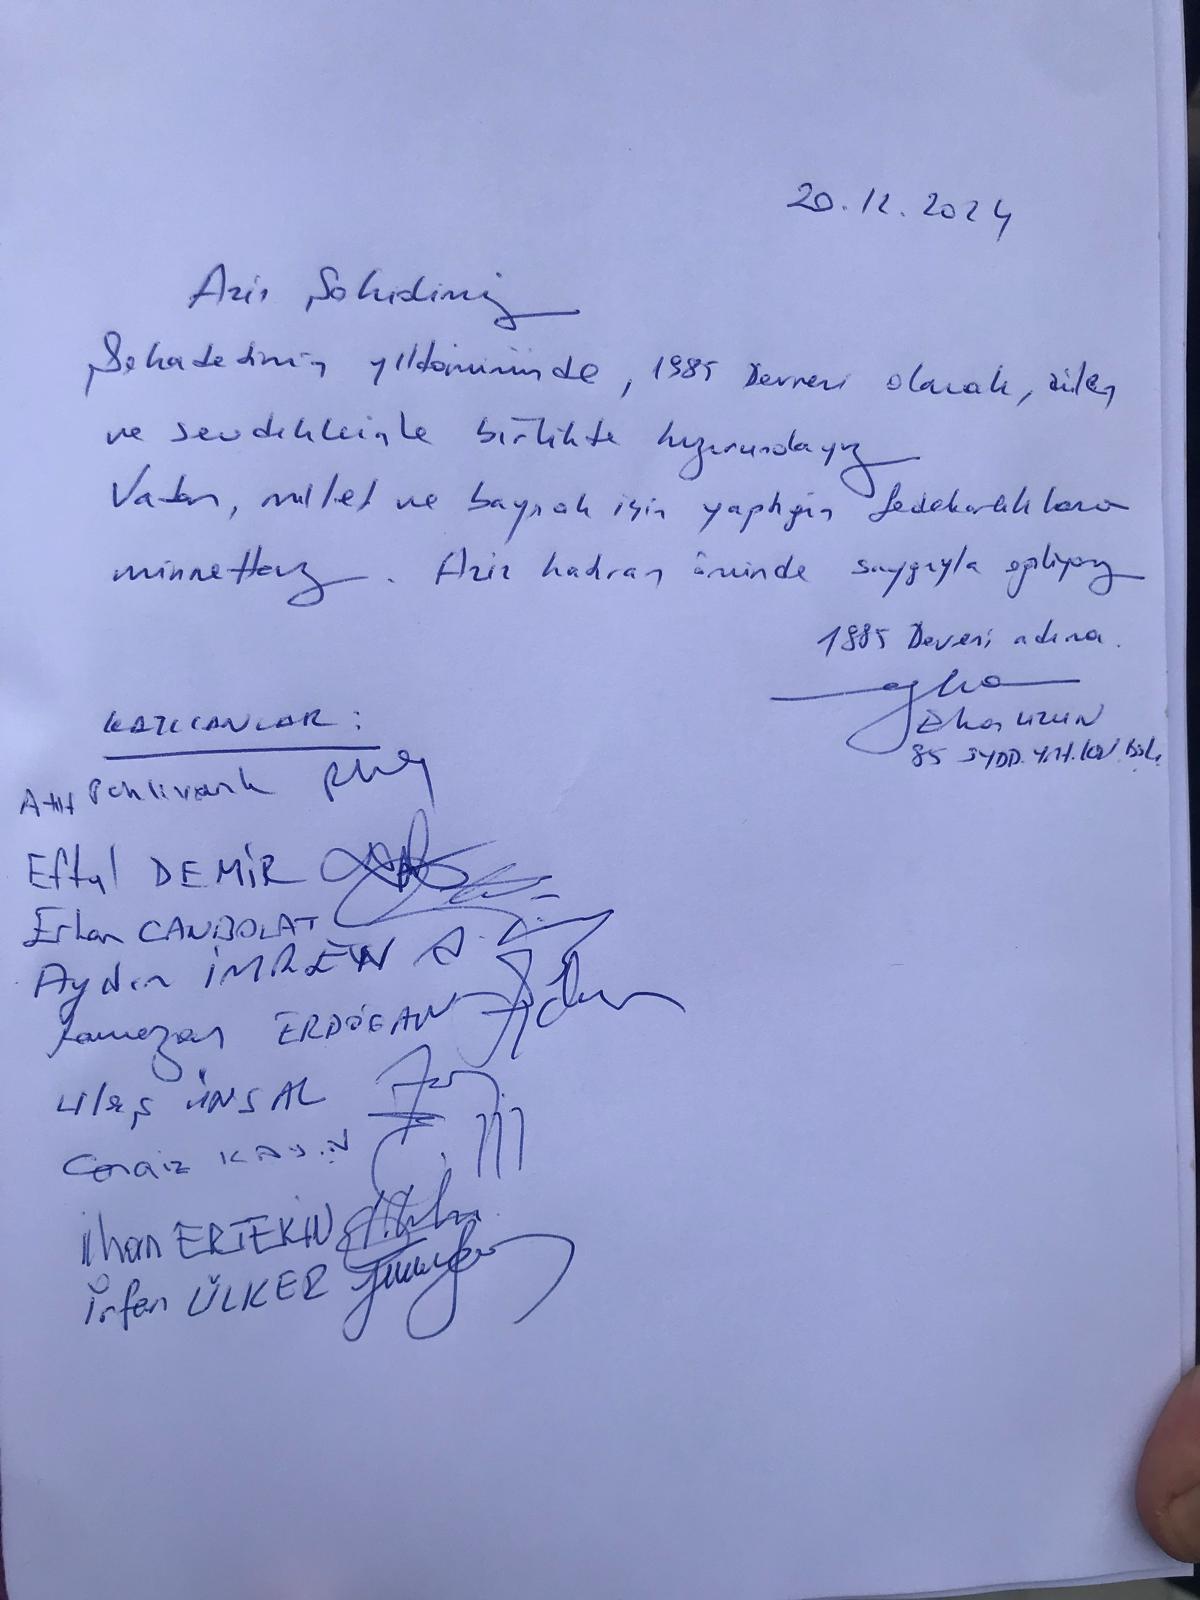 20.12.2024
Aziz Şehidimiz
Şehadetinin yıldönümünde, 1985 Devresi olarak, ailen
ve sevdiklerinle birlikte huzurundayız
Vatan, millet ve bayrak için yaptığın fedakarlıklara
minnettarız. Aziz hatıran önünde saygıyla eğiliyoruz
1985 Devresi adına.
UZUN
85
KATILANLAR:
Pehlivanlı
Eftal DEMİR
Erkan CANBOLAT
Aydın İMREN A.
Ramazan ERDOĞAN
Ulaş ÜNSAL
Cengiz
İlhan ERTEKİN
İrfan ÜLKER